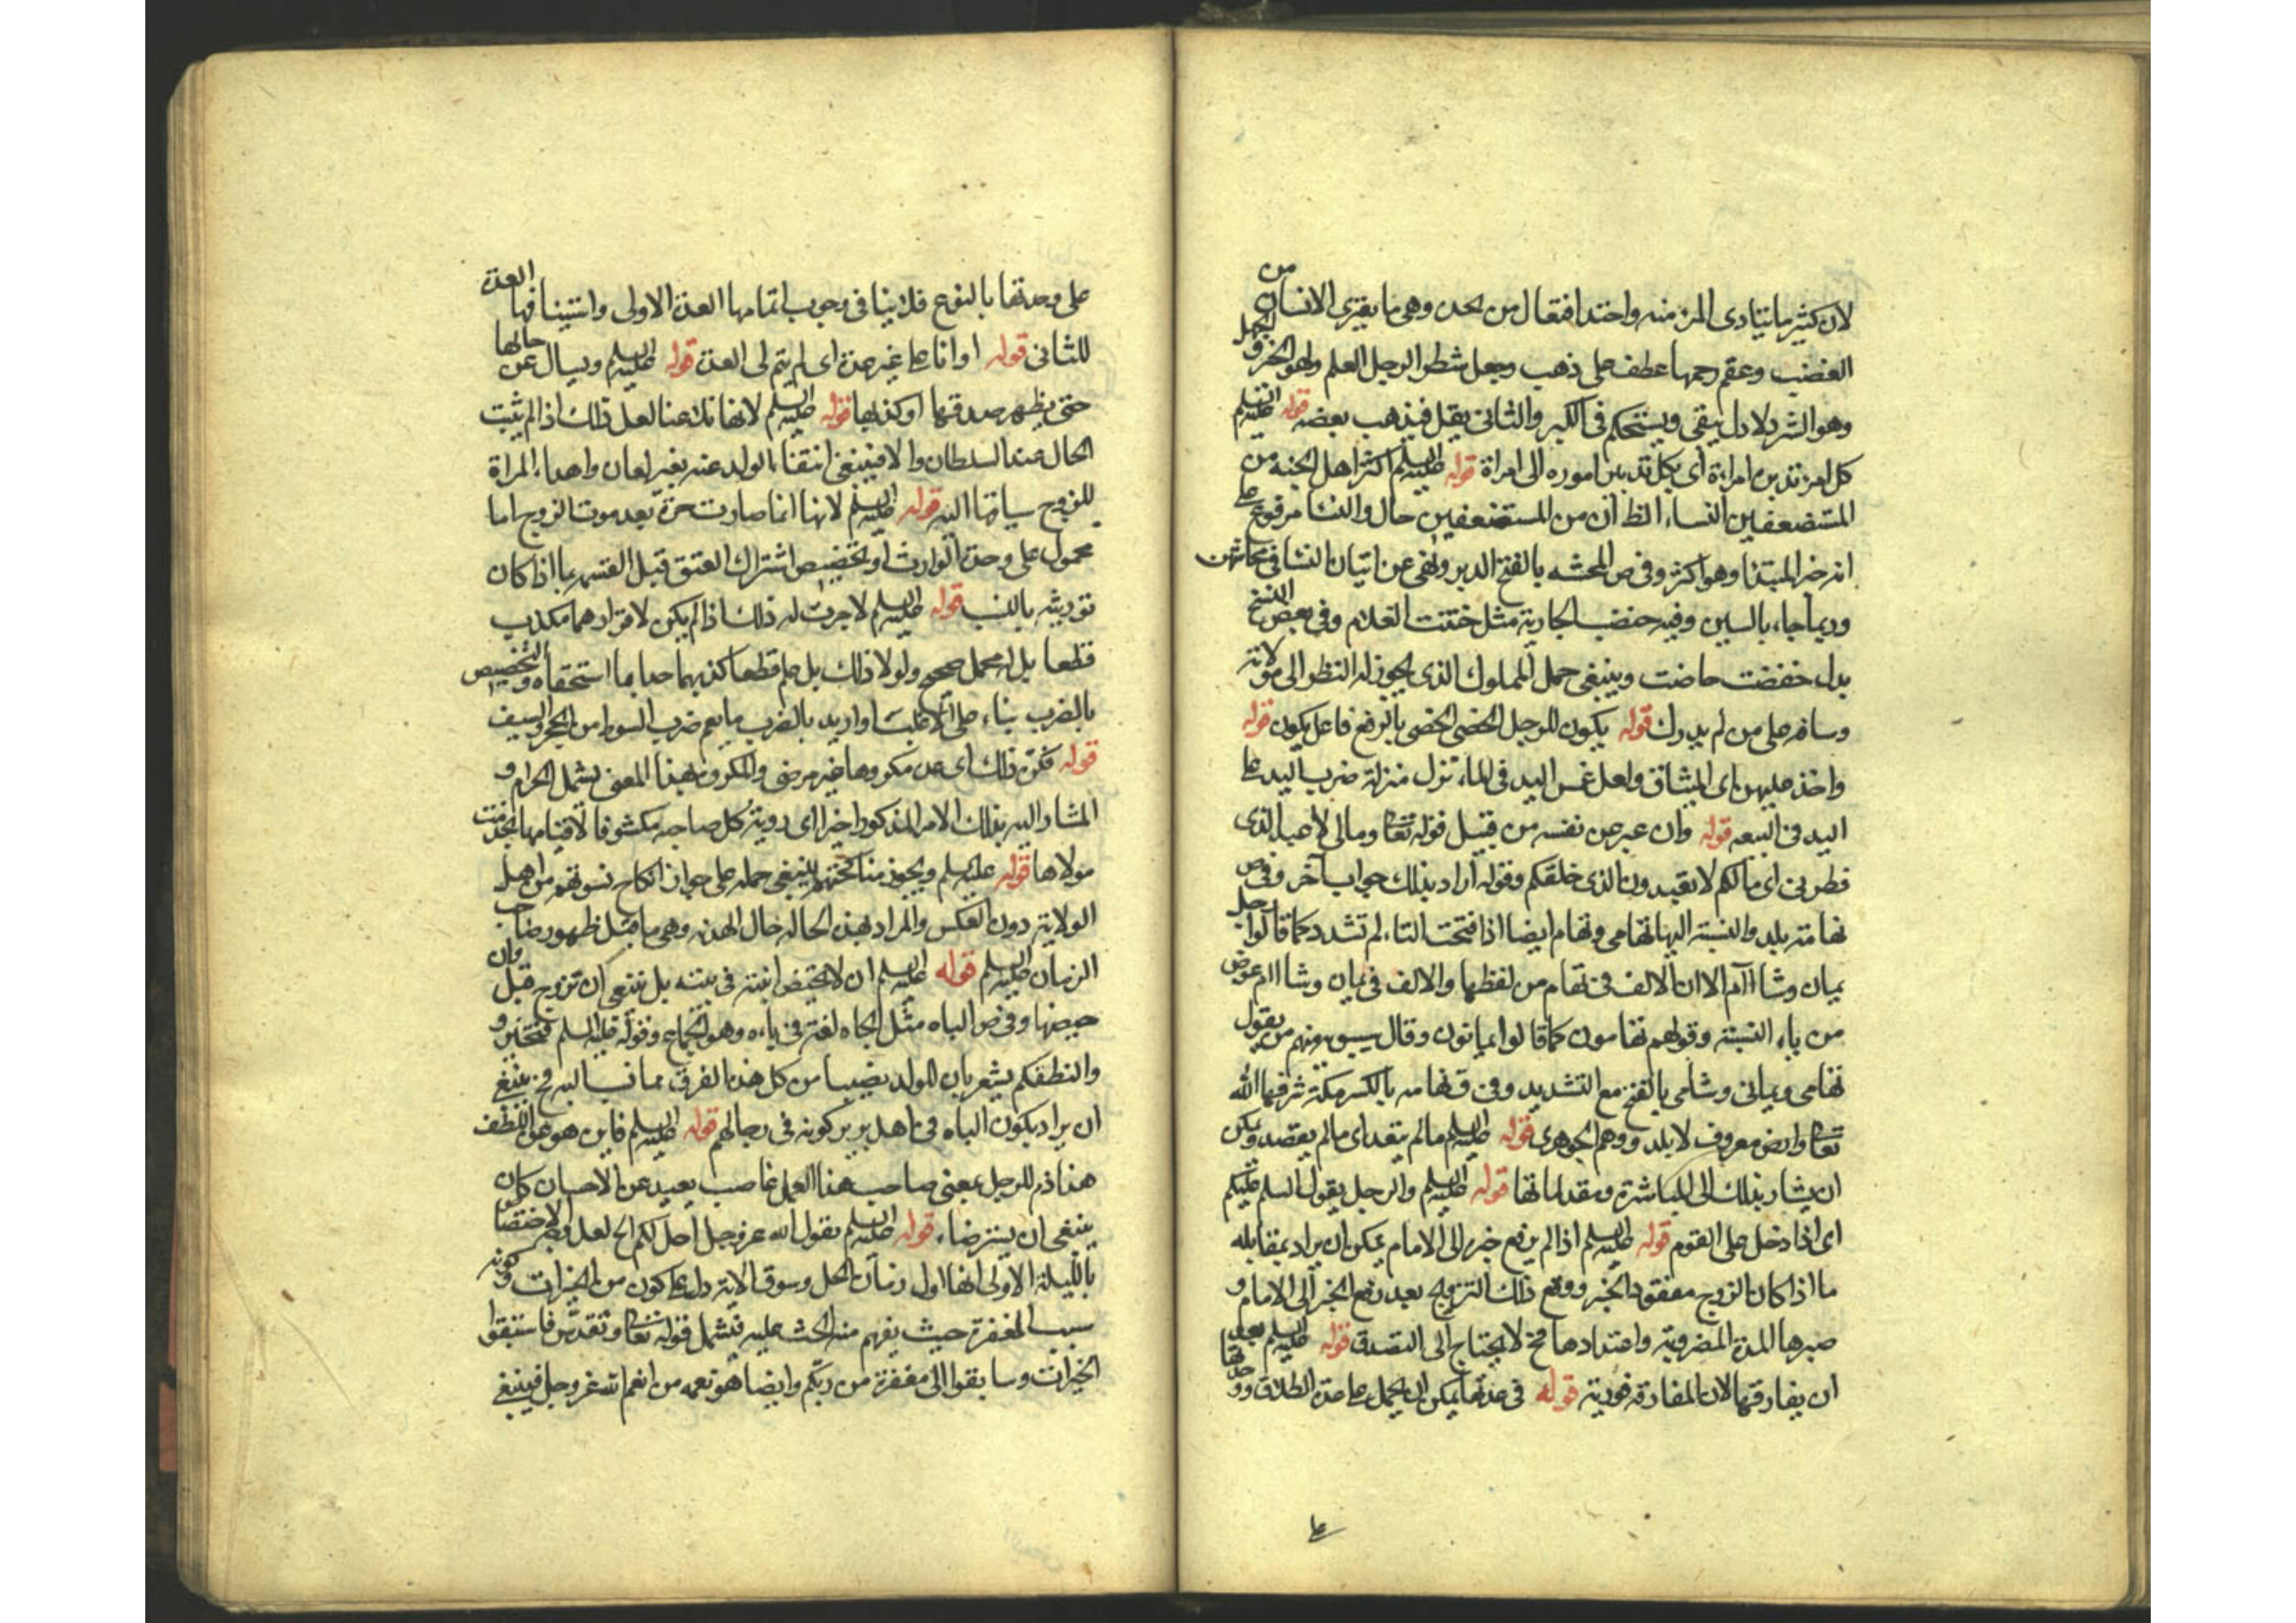 لان كثيرا ما يتادى المرء منه واحتد افتعال من الحده وهي ما يعترى الانسان من
الغضب وعقم رحمها عطف على ذهب وجعل شطر الرجل العلم ولهو الخرق والجهل
وهو الشر دلاول يبقى ويستحكم في الكبر والثانى يقل فيذهب بعضه قوله عليه السلم
كل امرء تدبره امراة اى بكل تدبير اموره الى امراة قوله عليه السلم اكثر اهل الجنه من
المستضعفين النساء الظ ان من المستضعفين حال والنسا مرفوع على
انه خبر المبتدا وهو اكثر وفى ص المحشه بالفتح الدبر ونهى عن اتيان النسا فى محاشهن
وربما جاء بالسين وفيه خفضت الجارية مثل ختنت الغلام وفى بعض النسخ
بدل خفضت حاضت وينبغى حمل المملوك الذى يجوز له النظر الى مولاته
وسافه على من لم يدرك قوله يكون للرجل الخصى الخصى بالرفع فاعل يكون قوله
واخذ عليهن اى الميثاق ولعل غمس اليد فى الماء تنزل منزلة ضرب اليد على
اليد فى البيعه قوله وان عبر عن نفسه من قبيل قوله تعالى ومالى لا اعبد الذى
فطرنى اى مالكم لا تعبدون الذى خلقكم وقوله اراد بذلك جواب آخر وفى ص
تهامة بلد والنسبة اليها تهامى وتهام ايضا اذا فتحت التاء لم تشدد كما قالوا رجل
يمان وشاآم الا ان الالف فى تهام من لفظها والالف فى يمان وشاام عوض
من ياء النسبة وقولهم تهامون كما قالوا يمانون وقال سيبويه منهم من يقول
تهامى ويمانى وشامى بالفتح مع التشديد وفى ق تهامه بالكسر مكة شرفها الله
تعالى وارض معروف لا بلد ووهم الجوهرى قوله عليه السلم مالم يتعد اى مالم يقصد ويمكن
ان يشار بذلك الى المباشرة ومقدماتها قوله عليه السلم والرجل يقول السلم عليكم
اى اذا دخل على القوم قوله عليه السلم اذا لم يرفع خبره الى الامام يمكن ان يراد بمقابله
ما اذا كان الزوج مفقود الخبر ووقع ذلك التزويج بعد رفع الخبر الى الامام و
صبرها المدة المضروبة واعتدادها فح لا يحتاج الى التصدق قوله عليه السلم بعد
ان يفارقها لان المفارقة فورية قوله فى عدتها يمكن ان يحمل على عدة الطلاق ووحدتها
على
على وحدتها بالنوع فلا ينافى وجوب اتمامها العدة الاولى واستينافها العدة
للثانى قوله او انا على غير عدة اى لم يتم لى العدة قوله عليه السلم ويسال عن حالها
حتى يظهر صدقها او كذبها قوله عليه السلم لانها تلاعنا لعل ذلك اذا لم يثبت
الحال عند السلطان والا فينبغى انتفاء الولد عنه بغير لعان واهداء المراة
للزوج سياقها اليه قوله عليه السلم لانها انما صارت حرة بعد موت الزوج اما
محمول على وحدة الوارث او تخصيص اشتراك العتق قبل القسمه بما اذا كان
توريثه بالنسب قوله عليه السلم لاجريت له ذلك اذا لم يكن لاقرارهما مكذب
قطعا بل له محمل صحيح ولولا ذلك بل علم قطعا كذبهما حدا بما استحقاه وتخصيص
بالضرب بناء على الاغلب او اريد بالضرب ما يعم ضرب السوط من الحجر والسيف
قوله فكره ذلك اى عده مكروها غير مرضى والمكروه بهذا المعنى يشمل الحرام و
المشار اليه بذلك الامر المذكور اخيرا اى روية كل صاحبه مكشوفا لاقيامها بخدمت
مولاها قوله عليه السلم ويجوز مناكحتهم ينبغى حمله على جواز نكاح نسوتهم من اهل
الولاية دون العكس والمراد بهذه الحاله حال الهدنه وهى ما قبل ظهور صاحب
الزمان عليه السلم قوله عليه السلم ان لا تحيض ابنته فى بيته بل ينبغى ان تزوج قبل وان
حيضها وفى ص الباه مثل الجاه لغة فى الباءه وهو الجماع وقوله عليه السلم
والنطفكم يشعر بان للولد نصيبا من كل هذه الفرق مما نسب اليه فح ينبغى
ان يراد بكون الباه فى اهل بربر كونه فى رجالهم قوله عليه السلم فاين هو
هذا ذم للرجل بمعنى صاحب هذا العمل غاصب بعيد عن الاحسان كان
ينبغى ان يسترضاه قوله عليه السلم بقول الله عز وجل احل لكم الخ لعل وجه الاختصاص
بالليلة الاولى انها اول زمان الحل وسوق الاية دل على كون من الخيرات وكونه
سبب المغفرة حيث يفهم منه الحث عليه فيشمل قوله تعالى وتقدس فاستبقوا
الخيرات وسابقوا الى مغفرة من ربكم وايضا هو نعمه من انعم الله عز وجل فينبغى